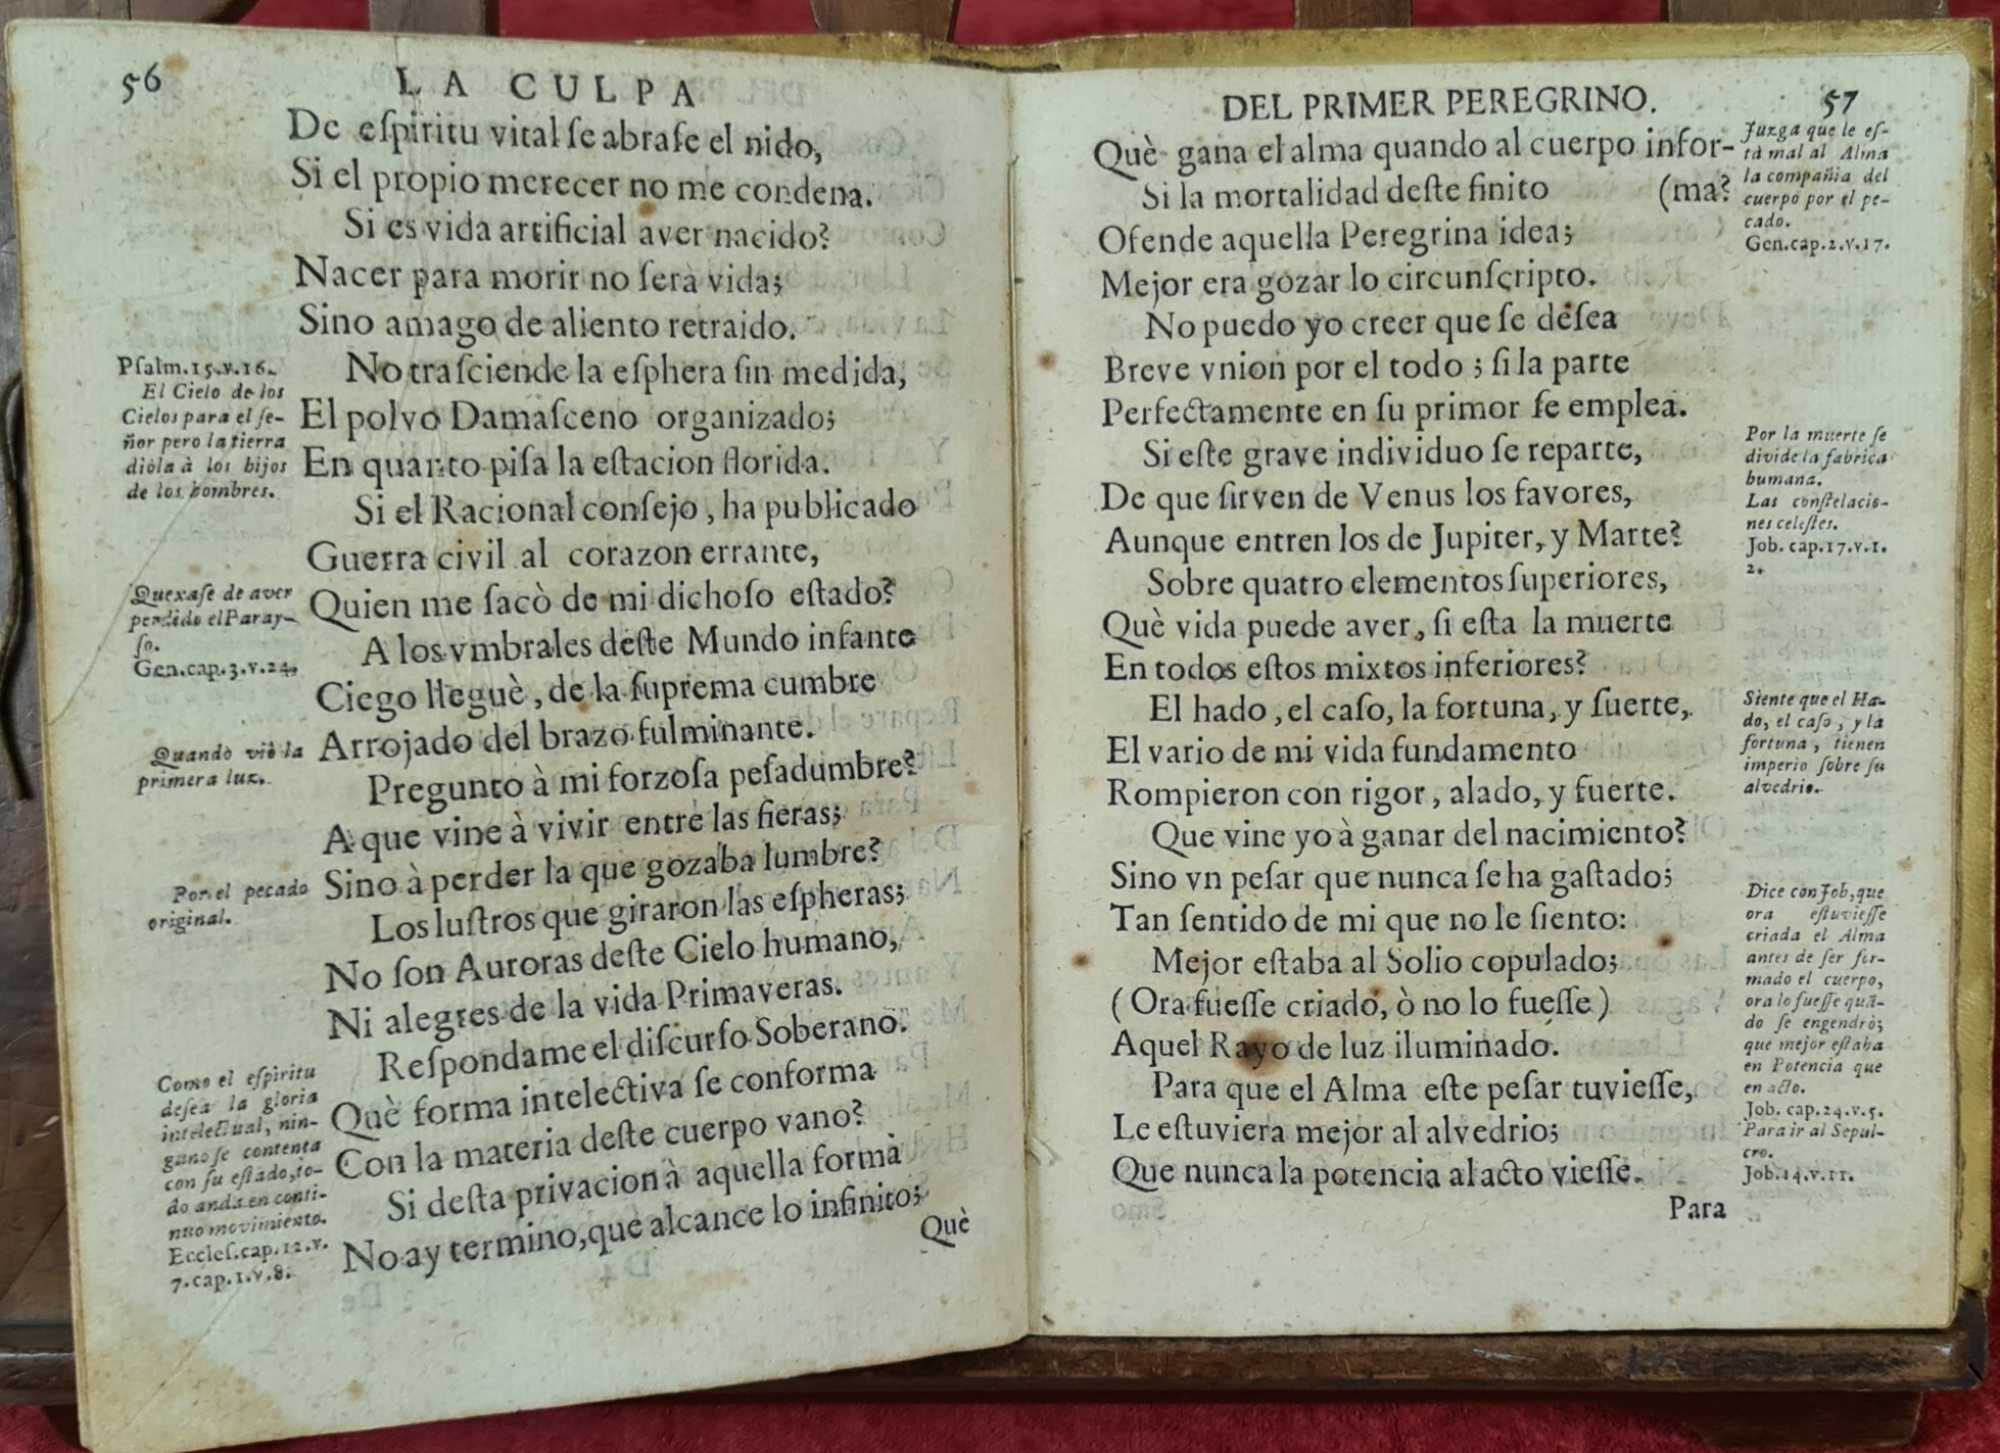 56
LA CULPA
De eſpiritu vital ſe abraſe el nido,
Si el propio merecer no me condena.
Si es vida artificial aver nacido?
Nacer para morir no ſerà vida;
Sino amago de aliento retraido.
No traſciende la eſphera ſin medida,
El polvo Damaſceno organizado;
En quanto piſa la eſtacion florida.
Si el Racional conſejo, ha publicado
Guerra civil al corazon errante,
Quien me ſacò de mi dichoſo eſtado?
A los vmbrales deſte Mundo infante
Ciego lleguè, de la ſuprema cumbre
Arrojado del brazo fulminante.
Pregunto à mi forzoſa peſadumbre?
A que vine à vivir entre las fieras;
Sino à perder la que gozaba lumbre?
Los luſtros que giraron las eſpheras;
No ſon Auroras deſte Cielo humano,
Ni alegres de la vida Primaveras.
Reſpondame el diſcurſo Soberano.
Què forma intelectiva ſe conforma
Con la materia deſte cuerpo vano?
Si deſta privacion à aquella forma
No ay termino, que alcance lo infinito;
Què
Pſalm.15.v.16.
El Cielo de los
Cielos para el ſe-
ñor pero la tierra
diòla à los hijos
de los hombres.
Quexaſe de aver
perdido el Paray-
ſo.
Gen.cap.3.v.24.
Quando viò la
primera luz.
Por el pecado
original.
Como el eſpiritu
deſea la gloria
intelectual, nin-
guno ſe contenta
con ſu eſtado, to-
do anda en conti-
nuo movimiento.
Eccleſ.cap.12.v.
7.cap.1.v.8.
DEL PRIMER PEREGRINO.
57
Què gana el alma quando al cuerpo infor-
Si la mortalidad deſte finito (ma?
Ofende aquella Peregrina idea;
Mejor era gozar lo circunſcripto.
No puedo yo creer que ſe deſea
Breve vnion por el todo; ſi la parte
Perfectamente en ſu primor ſe emplea.
Si eſte grave individuo ſe reparte,
De que ſirven de Venus los favores,
Aunque entren los de Jupiter, y Marte?
Sobre quatro elementos ſuperiores,
Què vida puede aver, ſi eſta la muerte
En todos eſtos mixtos inferiores?
El hado, el caſo, la fortuna, y ſuerte,
El vario de mi vida fundamento
Rompieron con rigor, alado, y fuerte.
Que vine yo à ganar del nacimiento?
Sino vn peſar que nunca ſe ha gaſtado;
Tan ſentido de mi que no le ſiento:
Mejor eſtaba al Solio copulado;
(Ora fueſſe criado, ò no lo fueſſe)
Aquel Rayo de luz iluminado.
Para que el Alma eſte peſar tuvieſſe,
Le eſtuviera mejor al alvedrio;
Que nunca la potencia al acto vieſſe.
Para
Juzga que le eſ-
tà mal al Alma
la compañia del
cuerpo por el pe-
cado.
Gen.cap.2.v.17.
Por la muerte ſe
divide la fabrica
humana.
Las conſtelacio-
nes celeſtes.
Job. cap.17.v.1.
2.
Siente que el Ha-
do, el caſo, y la
fortuna, tienen
imperio ſobre ſu
alvedrio.
Dice con Job, que
ora eſtuvieſſe
criada el Alma
antes de ſer for-
mado el cuerpo,
ora lo fueſſe quã-
do ſe engendrò;
que mejor eſtaba
en Potencia que
en acto.
Job. cap.24.v.5.
Para ir al Sepul-
cro.
Job.14.v.11.